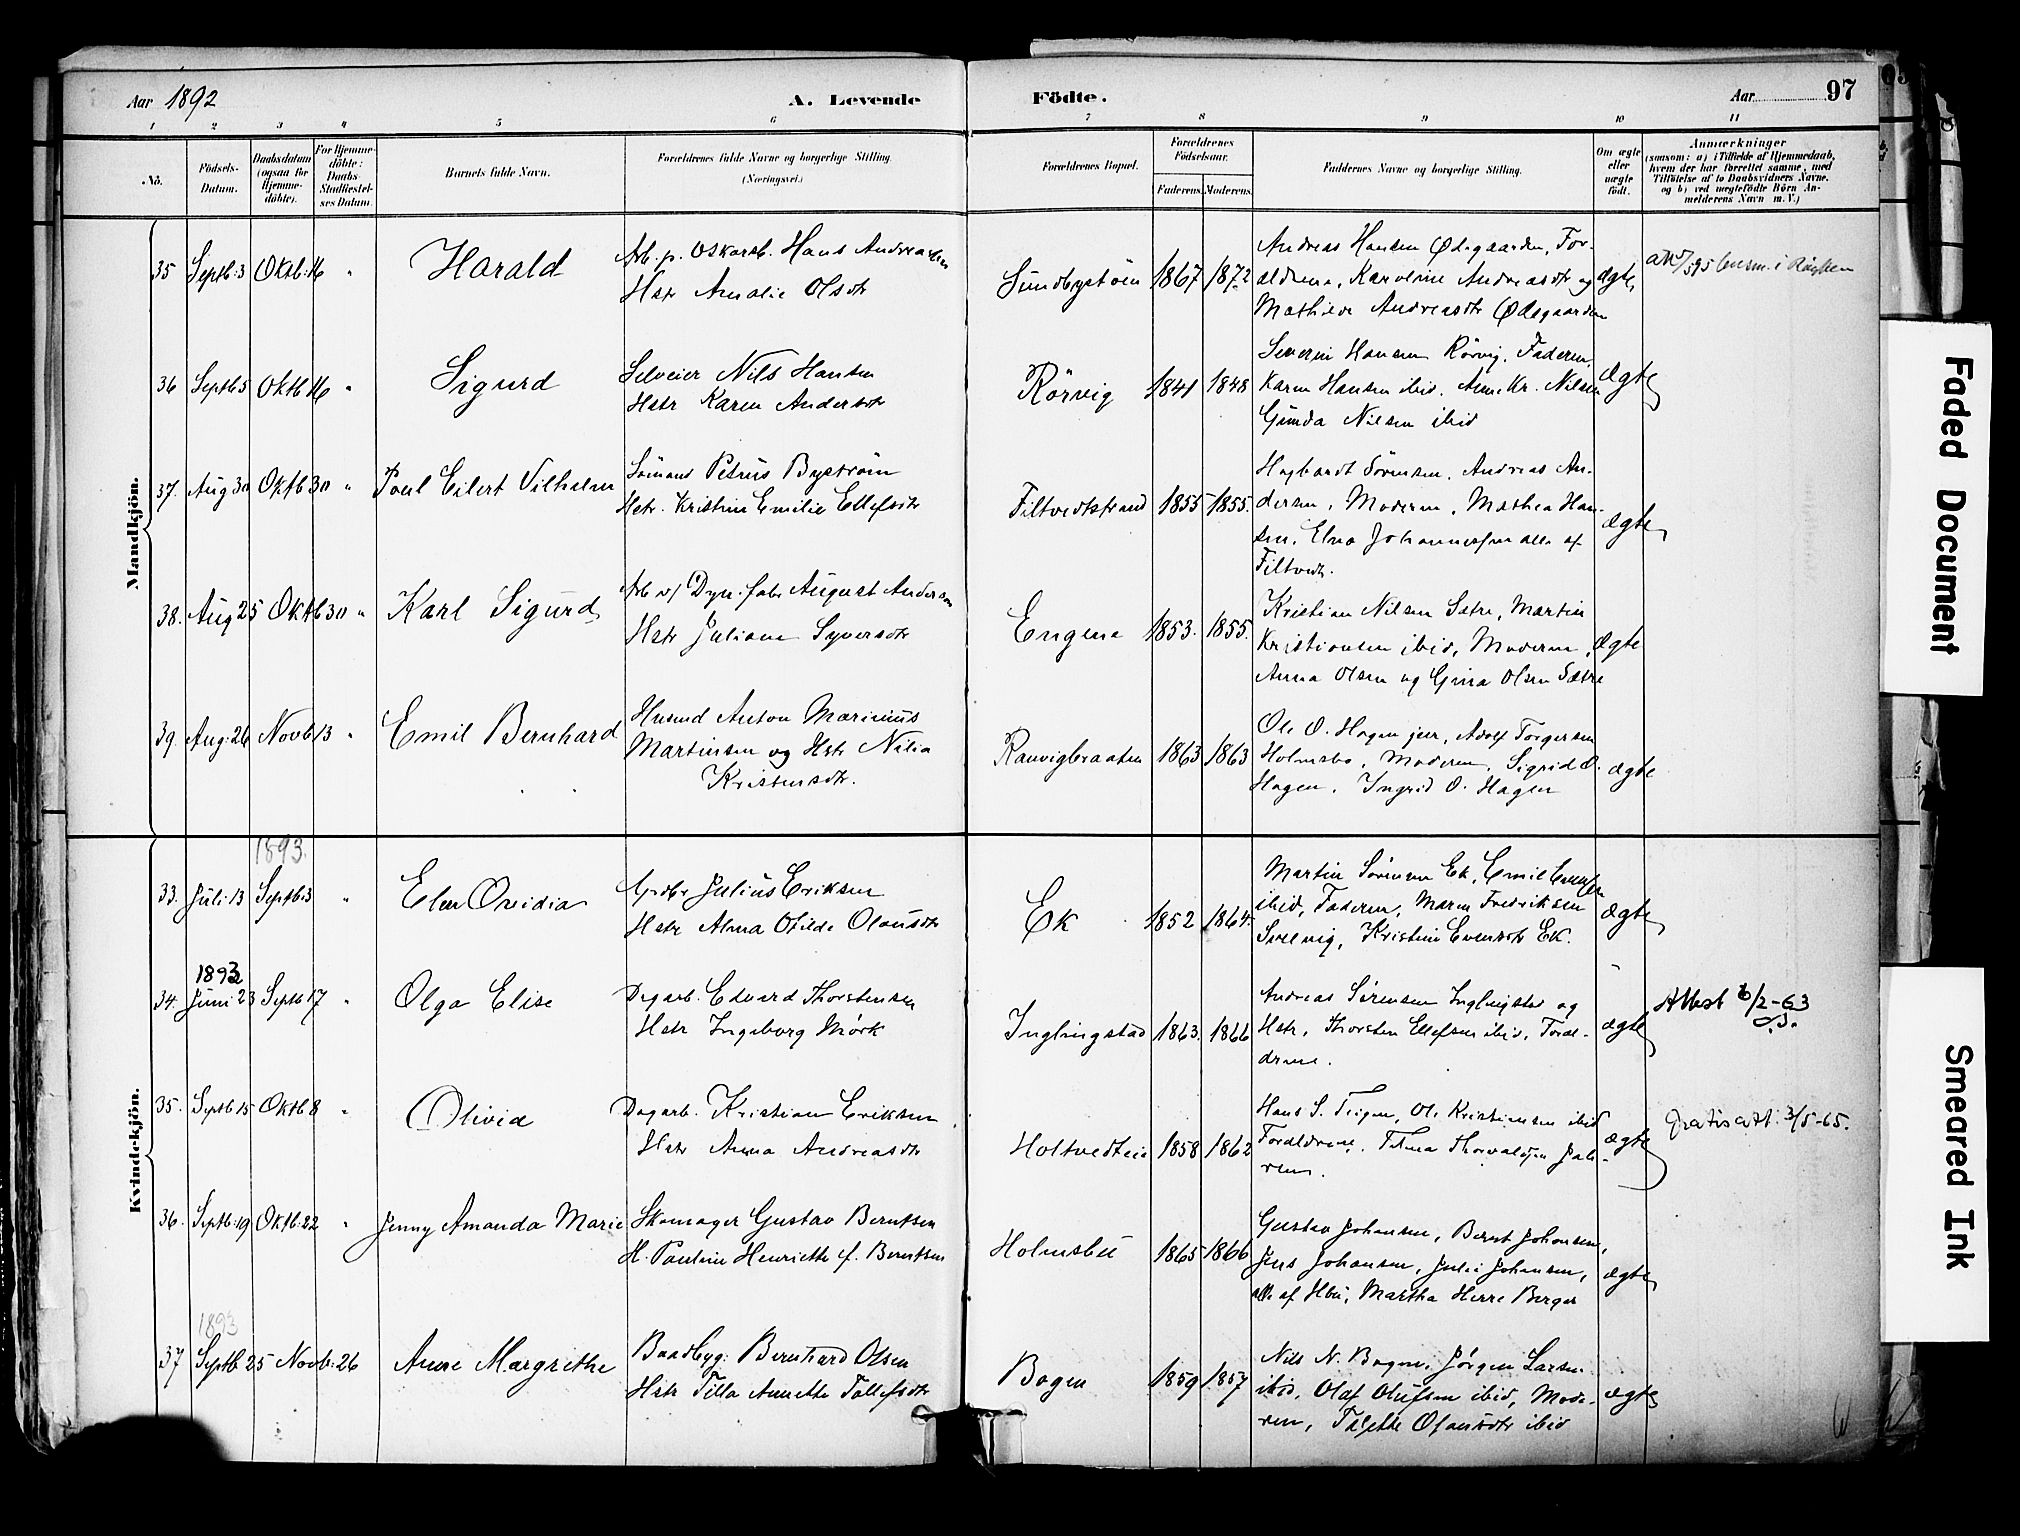 Aar 1892
A. Levende
Födte.
Aar 97
1 2 3 4 5 6 7 8 9 10 11
No.
Födsels-Datum.
Daabsdatum (ogsaa for Hjemme-döbte).
For Hjemme-döbte: Daabs-Stadfæstel-ses Datum.
Barnets fulde Navn.
Forældrenes fulde Navne og borgerlige Stilling. (Næringsvei.)
Forældrenes Bopæl.
Forældrenes Födselsaar.
Faderens. Moderens.
Faddernes Navne og borgerlige Stilling.
Om ægte eller uægte födt.
Anmærkninger
(saasom: a) i Tilfælde af Hjemmedaab,
hvem der har forrettet samme, med
Tilföielse af to Daabsvidners Navne,
og b) ved uægtefödte Börn An-
melderens Navn m. V.)
Mandkjön.
35 Septb: 3 Oktb: 16 " Harald
Arb. p. Oskarsb. Hans Andreasen
Hstr Amalie Olsdtr
Sundbystöen 1867 1872
Andreas Hansen Ødegaarden, For-
ældrene, Karoline Andreasdtr og
Mathilde Andreasdtr Ødegaarden
ægte,
36 Septb 5 Oktb 16 " Sigurd
Selveier Nils Hansen
Hstr Karen Andersdtr
Rörvig 1841 1848
Severin Hansen Rörvig, Faderen,
Karen Hansen ibid, Anne Kr. Nilsen
Gunda Nilsen ibid
ægte
37. Aug 30 Oktb 30 " Poul Eilert Vilhelm
Sömand Petrus Byström
Hstr. Kristine Emilie Ellefsdtr
Filtvedtstrand 1855 1855.
Hagbardt Sörensen, Andreas An-
dersen, Moderen, Mathea Han-
sen, Elna Johannesen alle af
Filtvedt.
ægte
38. Aug 25 Oktb 30 " Karl Sigurd
Arb v/ Dyn. fabr August Andersen
Hstr Juliane Syversdtr
Engene 1853. 1855.
Kristian Nilsen Sætre, Martin
Kristiansen ibid, Moderen,
Anna Olsen og Gina Olsen Sætre
Ægte
39. Aug: 26 Novb 13 " Emil Bernhard
Husmd Anton Marinius
Martinsen og Hstr Nilia
Kristensdtr.
Ranvigbraaten 1863 1863
Ole O. Hagen jun, Adolf Torgersen
Holmsbo, Moderen, Sigrid O.
Hagen, Ingrid O. Hagen
ægte
Kvindekjön.
1893.
33. Juli 13 Septb 3 " Elen Ovidia
Julius Eriksen
Hstr Alma Otilde Olausdtr
Ek 1852 1864.
Martin Sörensen Ek, Emil Evensen
ibid, Faderen, Maren Fredriksen
Kristine Evensdtr Ek.
ægte
1893
34. Juni 23 Septb 17 " Olga Elise
Dagarb. Edvard Thorstensen
Hstr Ingeborg Mörk
Inglingstad 1863. 1866
Andreas Sörensen Inglingstad og
Hstr, Thorsten Ellefsen ibid, Foræl-
drene.
ægte
Attest 6/2-63
35. Septb 15 Oktb 8 " Olivia
Dagarb. Kristian Eriksen
Hstr Anna Andreasdtr
Holtvedteie 1858 1862
Hans S. Teigen, Ole Kristiansen ibid
Forældrene, Tilma Thorvaldsen
ægte
Gratis att. 3/5-65.
36. Septb: 19 Oktb: 22 " Jenny Amanda Marie
Skomager Gustav Berntsen
H. Pauline Henriette f. Berntsen
Holmsbu 1865 1866
Gustav Johansen, Bernt Johansen,
Jens Johansen, Julie Johansen,
alle af Hbu, Martha Herre Berger
ægte
1893
37 Septb 25 Novb: 26 Anne Margrethe
Baadbyg. Bernhard Olsen
Hstr Tilla Annette Tollefsdtr
Bogen 1859 1857
Nils N. Bogen, Jörgen Larsen
ibid, Olaf Olufsen ibid, Mode-
ren, Olausdtr ibid
ægte
Faded Document
Smeared Ink